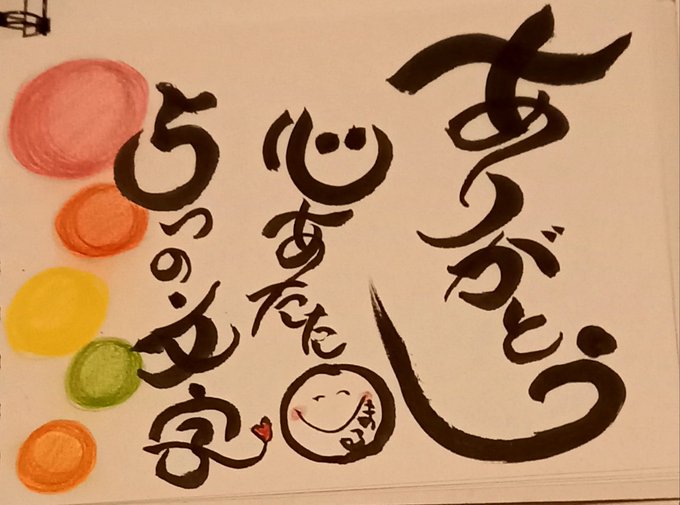 ありがとう
心あたたまる
5つの文字